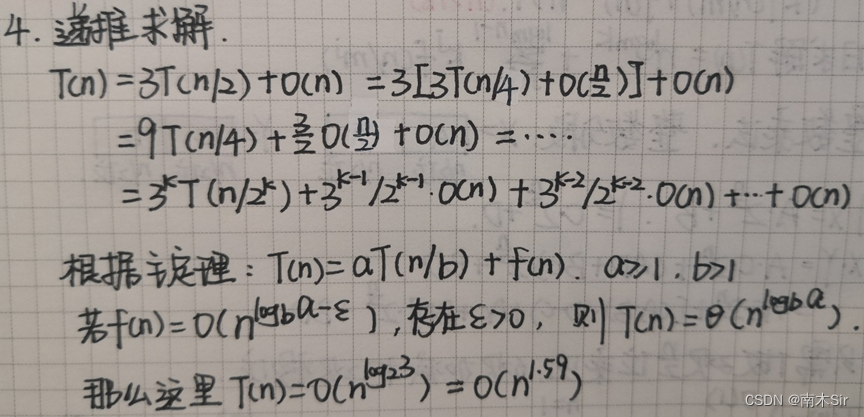 4. 递推求解.
T(n)=3T(n/2)+O(n) =3[3T(n/4)+O(n/2)]+O(n)
=9T(n/4)+3/2 O(n/2)+O(n)=.....
=3^k T(n/2^k)+3^(k-1)/2^(k-1)·O(n)+3^(k-2)/2^(k-2)·O(n)+...+O(n)
根据主定理: T(n)=aT(n/b)+f(n). a≥1. b>1
若f(n)=O(n^(log_b a-ε)), 存在ε>0, 则T(n)=θ(n^(log_b a)).
那么这里T(n)=O(n^(log_2 3))=O(n^1.59)
CSDN @南木Sir